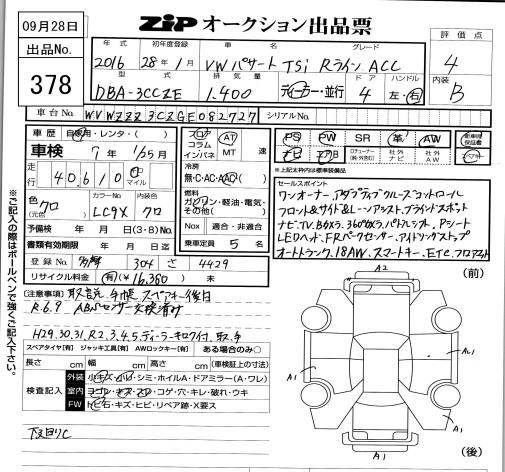 09月28日
ZIP オークション出品票
評価点
出品No.
378
年式 初年度登録 車名 グレード
2016 28年1月 VWパサート TSi Rライン ACC
4
型式 排気量 ドア ハンドル
内装
DBA-3CCZE 1,400 ガソリン・並行 4 左・右
B
車台No. WVWZZZ3CZGE082727 シリアルNo.
車歴 自家用・レンタ・( )
フロア AT
コラム
インパネ MT 速
PS PW SR 革 AW
ナビ エアB 社外ナビ 社外AW
新車時保証書
車検 7年 1/25月
※上記太枠内は標準装備品
走行 40,610 km マイル
冷房
無・C・AC・AAC( )
セールスポイント
ワンオーナー、アダプティブクルーズコントロール
燃料
ガソリン・軽油・電気・その他( )
フロント&サイド&レーンアシスト、ブラインドスポット
色 クロ (元色) カラーNo. LC9X 内装色 クロ
ナビ、TV、Bカメラ、360°カメラ、パドルシフト、Pシート
予備検 年 月 日(3・8)No.
Nox 適合・非適合
LEDヘッド、F,Rパークセンサー、アイドリングストップ
書類有効期限 年 月 日迄
乗車定員 5名
オートトランク、18AW、スマートキー、ETC、フロアマット
登録No. 多摩 304 さ 4429
リサイクル料金 (有)¥16,380 無
A2 (前)
(注意事項) 取説 手帳 スペアキー後日
R.6.9 ABSセンサー交換済み
H29.30.31.R2.3.4.5.ディーラーキロク付、取、手
スペアタイヤ[有] ジャッキ工具[有] AWロックキー[有] ある場合のみ○
長さ cm 幅 cm 高さ cm (車検証上の寸法)
検査記入
外装 小キズ・小凹・シミ・ホイルA・ドアミラー(A・ワレ)
室内 ヨゴレ・キズ・スレ・コゲ・穴・キレ・破れ・ウキ
FW トビ石・キズ・ヒビ・リペア跡・X要ス
A1
AW1
A1
A1 (後)
※ご記入の際はボールペンで強くご記入下さい。